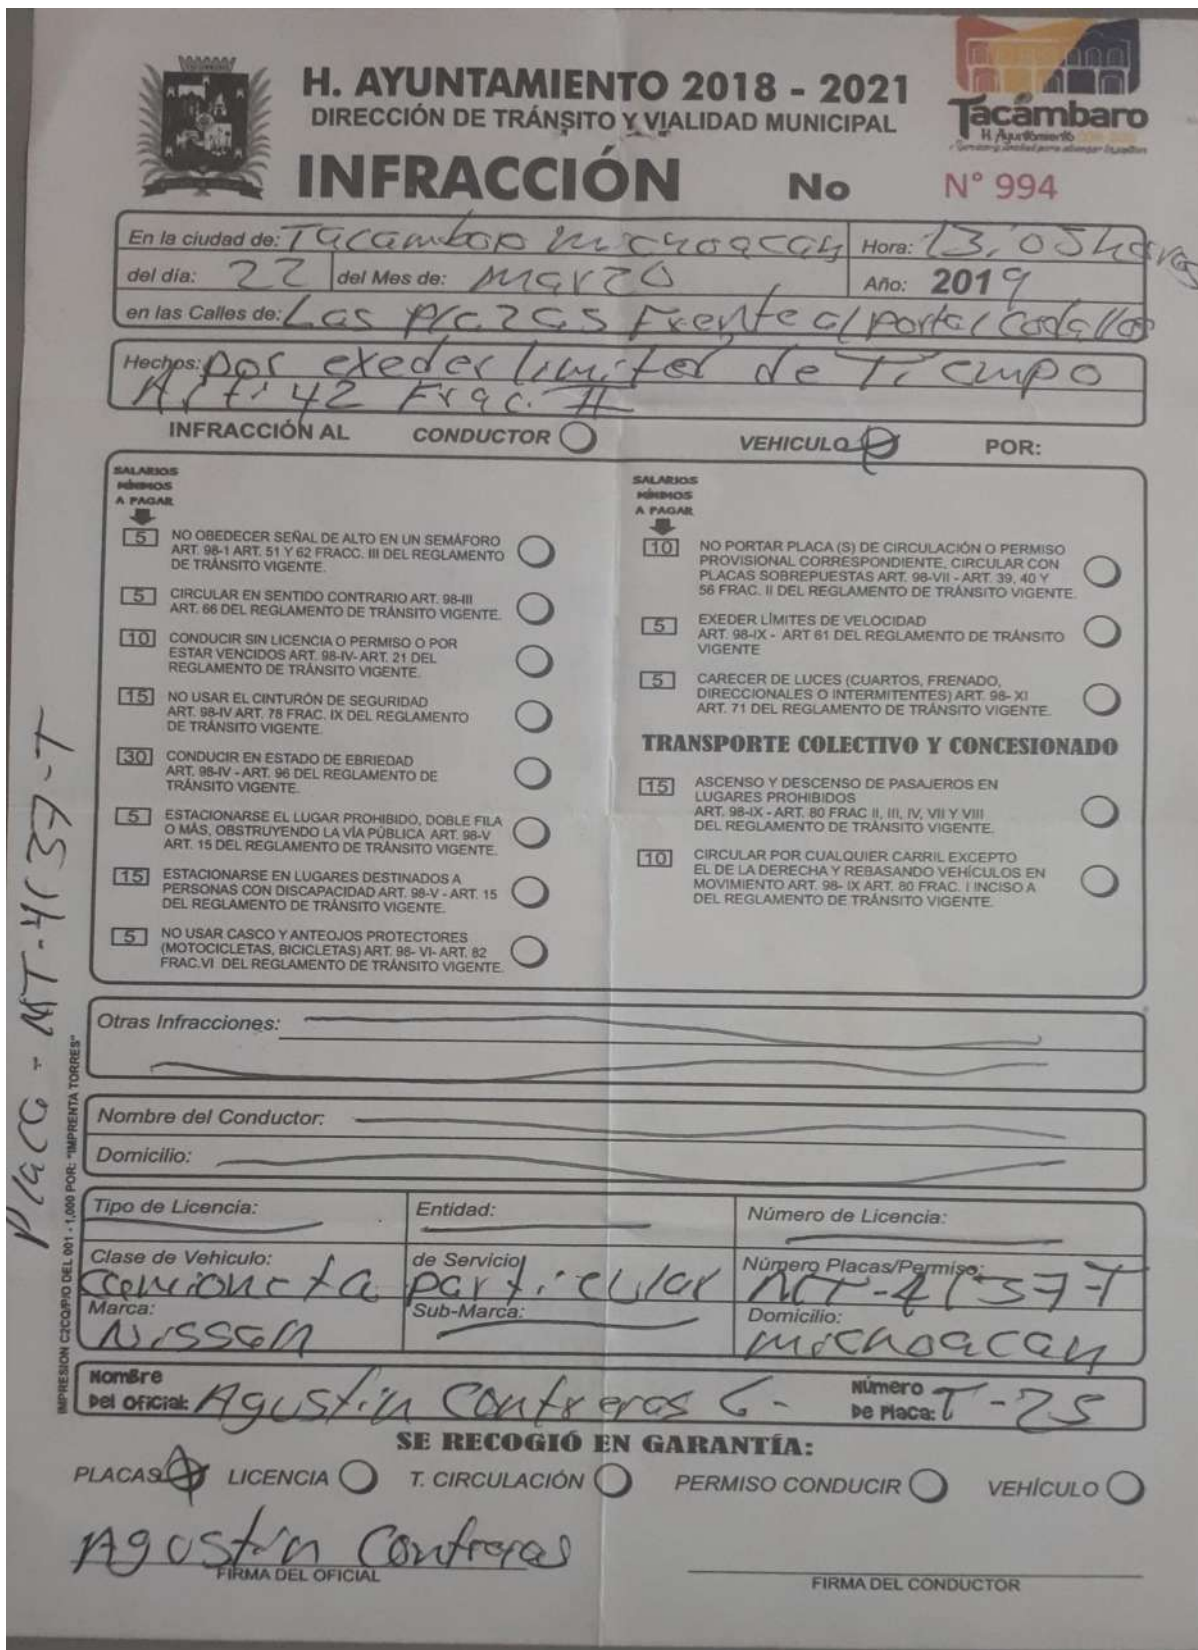 H. AYUNTAMIENTO 2018 - 2021
DIRECCIÓN DE TRÁNSITO Y VIALIDAD MUNICIPAL
Tacámbaro
H. Ayuntamiento
INFRACCIÓN No N° 994
En la ciudad de: Tacambaro Michoacan Hora: 13:05 horas
del día: 22 del Mes de: Marzo Año: 2019
en las Calles de: Las plazas Frente al portal Codallos
Hechos: por exeder limites de Tiempo
Art: 42 Frac. II
INFRACCIÓN AL CONDUCTOR VEHICULO POR:
SALARIOS
MÍNIMOS
A PAGAR
5 NO OBEDECER SEÑAL DE ALTO EN UN SEMÁFORO
ART. 98-1 ART. 51 Y 62 FRACC. III DEL REGLAMENTO
DE TRÁNSITO VIGENTE.
5 CIRCULAR EN SENTIDO CONTRARIO ART. 98-III
ART. 66 DEL REGLAMENTO DE TRÁNSITO VIGENTE.
10 CONDUCIR SIN LICENCIA O PERMISO O POR
ESTAR VENCIDOS ART. 98-IV- ART. 21 DEL
REGLAMENTO DE TRÁNSITO VIGENTE.
15 NO USAR EL CINTURÓN DE SEGURIDAD
ART. 98-IV ART. 78 FRAC. IX DEL REGLAMENTO
DE TRÁNSITO VIGENTE.
30 CONDUCIR EN ESTADO DE EBRIEDAD
ART. 98-IV - ART. 96 DEL REGLAMENTO DE
TRÁNSITO VIGENTE.
5 ESTACIONARSE EL LUGAR PROHIBIDO, DOBLE FILA
O MÁS, OBSTRUYENDO LA VÍA PÚBLICA ART. 98-V
ART. 15 DEL REGLAMENTO DE TRÁNSITO VIGENTE.
15 ESTACIONARSE EN LUGARES DESTINADOS A
PERSONAS CON DISCAPACIDAD ART. 98-V - ART. 15
DEL REGLAMENTO DE TRÁNSITO VIGENTE.
5 NO USAR CASCO Y ANTEOJOS PROTECTORES
(MOTOCICLETAS, BICICLETAS) ART. 98- VI- ART. 82
FRAC.VI DEL REGLAMENTO DE TRÁNSITO VIGENTE.
SALARIOS
MÍNIMOS
A PAGAR
10 NO PORTAR PLACA (S) DE CIRCULACIÓN O PERMISO
PROVISIONAL CORRESPONDIENTE, CIRCULAR CON
PLACAS SOBREPUESTAS ART. 98-VII - ART. 39, 40 Y
56 FRAC. II DEL REGLAMENTO DE TRÁNSITO VIGENTE.
5 EXEDER LÍMITES DE VELOCIDAD
ART. 98-IX - ART 61 DEL REGLAMENTO DE TRÁNSITO
VIGENTE
5 CARECER DE LUCES (CUARTOS, FRENADO,
DIRECCIONALES O INTERMITENTES) ART. 98- XI
ART. 71 DEL REGLAMENTO DE TRÁNSITO VIGENTE.
TRANSPORTE COLECTIVO Y CONCESIONADO
15 ASCENSO Y DESCENSO DE PASAJEROS EN
LUGARES PROHIBIDOS
ART. 98-IX - ART. 80 FRAC II, III, IV, VII Y VIII
DEL REGLAMENTO DE TRÁNSITO VIGENTE.
10 CIRCULAR POR CUALQUIER CARRIL EXCEPTO
EL DE LA DERECHA Y REBASANDO VEHÍCULOS EN
MOVIMIENTO ART. 98- IX ART. 80 FRAC. I INCISO A
DEL REGLAMENTO DE TRÁNSITO VIGENTE.
Otras Infracciones:
Nombre del Conductor:
Domicilio:
Tipo de Licencia: Entidad: Número de Licencia:
Clase de Vehiculo: Camioneta de Servicio particular Número Placas/Permiso: MT-4137-T
Marca: Nissan Sub-Marca: Domicilio: Michoacan
Nombre
Del Oficial: Agustin Contreras G- Número
De Placa: T-25
SE RECOGIÓ EN GARANTÍA:
PLACAS LICENCIA T. CIRCULACIÓN PERMISO CONDUCIR VEHÍCULO
Agustin Contreras
FIRMA DEL OFICIAL
FIRMA DEL CONDUCTOR
Placa - MT-4137-T
IMPRESION C2CO/P/O DEL 001 - 1,000 POR: "IMPRENTA TORRES"